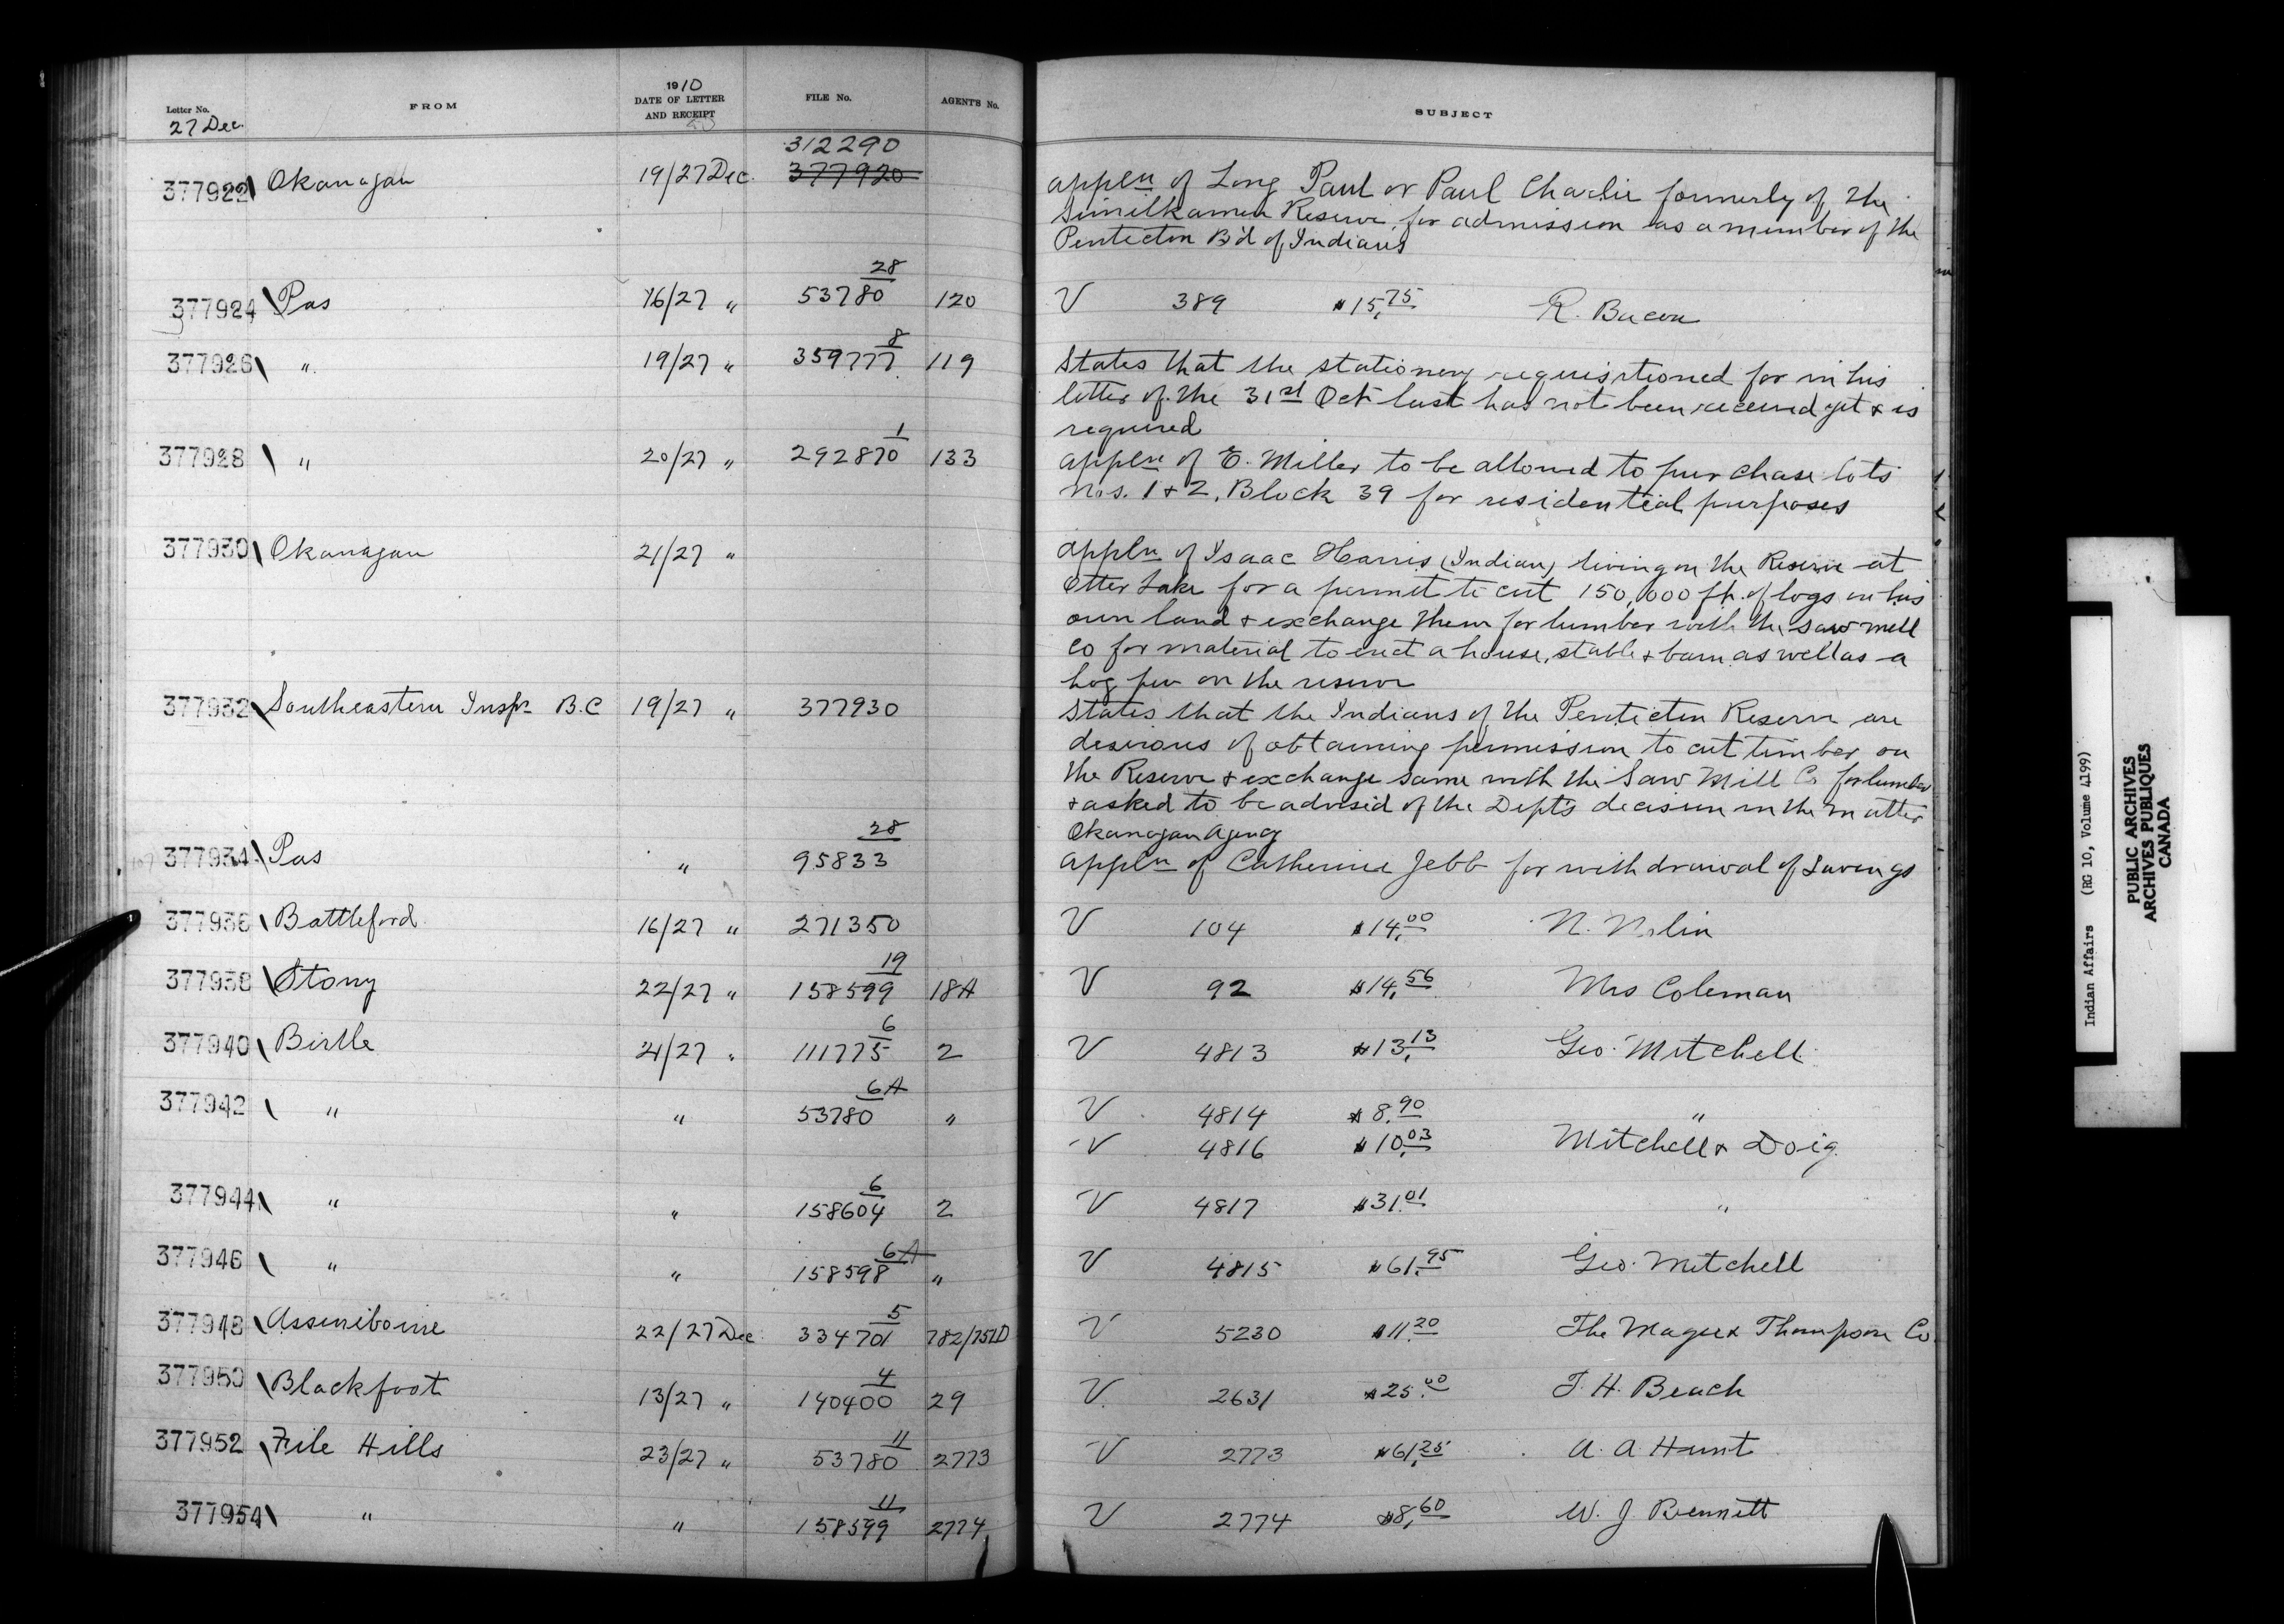 Letter No. FROM 1910 DATE OF LETTER AND RECEIPT FILE No. AGENT'S No. SUBJECT
27 Dec.
312290
377922 Okanagan 19/27 Dec. 377920 appln of Long Paul or Paul Charlie formerly of the
Similkameen Reserve, for admission as a member of the
Penticton B'd of Indians
28
377924 Pas 16/27 " 53780 120 V 389 $15.75 R. Bacon
8
377926 " 19/27 " 359777 119 States that the stationery requisitioned for in his
letter of the 31st Oct last has not been received yet & is
required
1
377928 " 20/27 " 292870 133 appln of E. Miller to be allowed to purchase lots
Nos. 1 & 2, Block 39 for residential purposes
377930 Okanagan 21/27 " appln of Isaac Harris (Indian) living on the Reserve at
Otter Lake for a permit to cut 150,000 ft. of logs on his
own land & exchange them for lumber with the saw mill
Co for material to erect a house, stable & barn as well as a
hog pen on the reserve
377932 Southeastern Inspr. B.C 19/27 " 377930 States that the Indians of the Penticton Reserve are
desirous of obtaining permission to cut timber on
the Reserve & exchange same with the Saw Mill Co for lumber
& asked to be advised of the Dept's decision in the matter
Okanagan Agency
28
377934 Pas " 95833 appln of Catherine Jebb for withdrawal of Savings
377936 Battleford 16/27 " 271350 V 104 $14.00 N. Nolin
19
377938 Stony 22/27 " 158599 18A V 92 $14.56 Mrs Coleman
6
377940 Birtle 21/27 " 111775 2 V 4813 $13.13 Geo. Mitchell
6A
377942 " " 53780 " V 4814 $8.90 "
V 4816 $10.03 Mitchell & Doig
6
377944 " " 158604 2 V 4817 $31.01 "
6A
377946 " " 158598 " V 4815 $61.95 Geo. Mitchell
5
377948 Assiniboine 22/27 Dec 334701 782/751D V 5230 $11.20 The Magee & Thompson Co
4
377950 Blackfoot 13/27 " 140400 29 V 2631 $25.00 T. H. Beach
11
377952 File Hills 23/27 " 53780 2773 V 2773 $61.25 A. A. Hunt
11
377954 " " 158599 2774 V 2774 $8.60 W. J Bennett
Indian Affairs (RG 10, Volume 4199)
PUBLIC ARCHIVES
ARCHIVES PUBLIQUES
CANADA